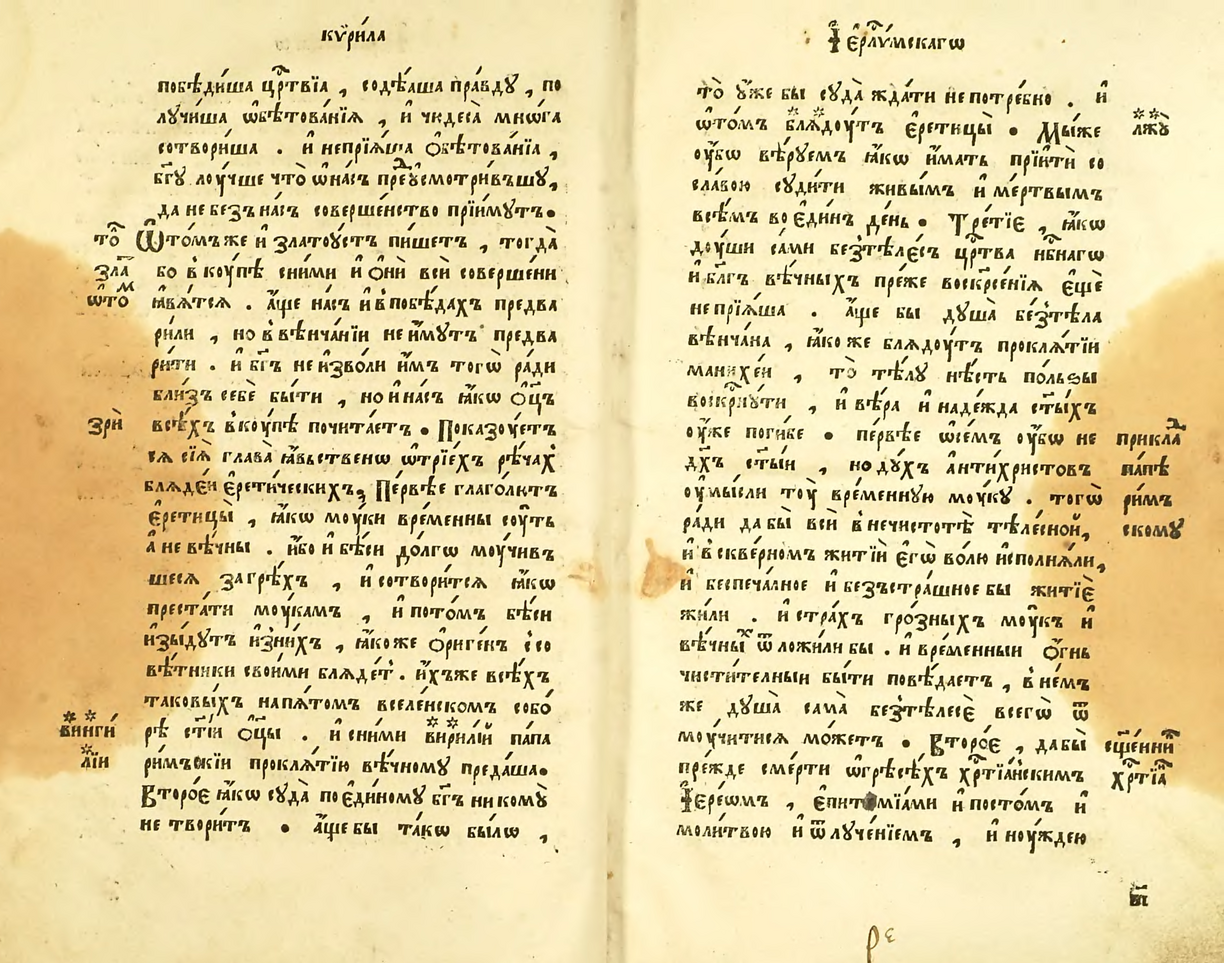 кѷри́ла
побѣди́ша цр҇твїа , содѣ́аша пра́вдꙋ , по
лꙋчи́ша ѡ҆бѣтова́нїѧ , и҆ чюдеса̀ мнѡ́га
сотвори́ша . и҆ непрїѧ́ша ѻ҆бѣтова́нїа ,
бг҃ꙋ лоу́чше что̀ ѡ҆на́съ преꙋсмотри́вшꙋ,
да не без̾ на́съ соверше́нство прїи́мꙋтъ.
то̑ Ѿто́мъже и҆ златоꙋ́стъ пи́шетъ , тогда̀
зла̑ бо в̾коу́пѣ сни́ми и҆ ѻ҆нѝ всѝ соверше́ни
ѡ҆то́м ꙗ҆вѧ́тсѧ . а҆́ще на́съ и҆ в̾побѣ́дахъ предва
ри́ли , но в̾вѣнча́нїи не и҆́мꙋтъ предва
ри́ти . и҆ бг҃ъ не и҆зво́ли и҆̀мъ тогѡ̀ ра́ди
бли́зъ себѐ бы́ти , но и҆ на́съ ꙗ҆́кѡ ѻ҆ц҃ъ
зрѝ всѣ́хъ в̾коу́пѣ почита́етъ . Показоу́етъ
сѧ сїѧ̀ глава̀ ꙗ҆́вьственѡ ѡ҆трїе́хъ рѣ́чах̾
блѧде́й є҆рети́ческихъ, Пе́рвѣе глаго́лютъ
є҆ретицы̀ , ꙗ҆́кѡ моу́ки вре́менны соу́ть
а҆ не вѣ́чны . и҆́бо и҆ бѣ́си до́лгѡ моу́чивъ
шесѧ за грѣ́хъ , и҆ сотвори́тсѧ ꙗ҆́кѡ
преста́ти моу́камъ , и҆ пото́мъ бѣ́си
и҆зы́дꙋтъ и҆зни́хъ , ꙗ҆́коже ѻ҆риге́нъ ссо
вѣ́тники свои́ми блѧде́т . и҆́хъже всѣ́хъ
таковы́хъ напѧ́томъ вселе́нскомъ собо́
винги́ рѣ ст҃і́и ѻ҆ц҃ы . и҆ сни́ми вирилі́й па́па
лїи ри́мъскїи проклѧ́тїю вѣ́чномꙋ преда́ша.
Второ́е ꙗ҆́кѡ сꙋда̀ по є҆ди́номꙋ бг҃ъ никомꙋ̀
не твори́тъ . а҆́ще бы та́кѡ бы́лѡ ,
І҆ер҇лꙋ́мскагѡ
то̀ ꙋ҆́же бы сꙋда̀ жда́ти не потре́бно . и҆
ѡ҆то́мъ блѧ́доутъ є҆ретицы̀ . Мы́же лжꙋ̀
оу҆́бѡ вѣ́рꙋемъ ꙗ҆́кѡ и҆́мать прїитѝ со
сла́вою сꙋди́ти живы́мъ и҆ ме́ртвымъ
всѣ́мъ во є҆ди́нъ де́нь . Тре́тїе , ꙗ҆́кѡ
доу́ши са́ми без̾тѣле́съ цр҇тва нб҃нагѡ
и҆ бл҃гъ вѣ́чныхъ пре́же воскр҇се́нїѧ є҆щѐ
не прїѧ́ша . а҆́ще бы дꙋша̀ без̾тѣ́ла
вѣнча́на , ꙗ҆́коже блѧ́доутъ проклѧ́тїи
манихе́и , то̀ тѣ́лꙋ нѣ́сть по́льѕы
воскрнꙋти , и҆ вѣ́ра и҆ наде́жда ст҃ы́хъ
оу҆́же поги́бе . пе́рвѣе ѡ҆се́мъ оу҆́бѡ не прикла́д
дх҃ъ ст҃ы́и , но дꙋ́хъ а҆нти́христовъ па́пѣ
оу҆мы́сли тоу̀ вре́меннꙋю моу́кꙋ . тогѡ̀ ри́мъ
ра́ди да бы̀ всѝ в̾нечистотѣ̀ тѣле́сной, скомꙋ̀
и҆ в̾скве́рномъ житїѝ є҆гѡ̀ во́лю и҆сполнѧ́ли,
и҆ беспеча́лное и҆ безъстра́шное бы житїѐ
жи́ли . и҆ стра́хъ гро́зныхъ моу́къ и҆
вѣ́чны́х ѿложи́ли бы . и҆ вре́менныи ѻ҆́гнь
чисти́телныи бы́ти повѣ́даетъ , в̾не́мъ
же дꙋша̀ сама̀ без̾тѣлесѐ всегѡ̀ ѿ
моу́читисѧ мо́жетъ . Второ́е , дабы̀ сщ҃е́нни
пре́жде сме́рти ѡ҆грѣсѣ́хъ хр҇тїа́нскимъ хр҇тїа̑
І҆ере́ѡмъ , є҆питимїа́ми и҆ посто́мъ и҆
моли́твою и҆ ѿлꙋче́нїемъ , и҆ ноу́ждею